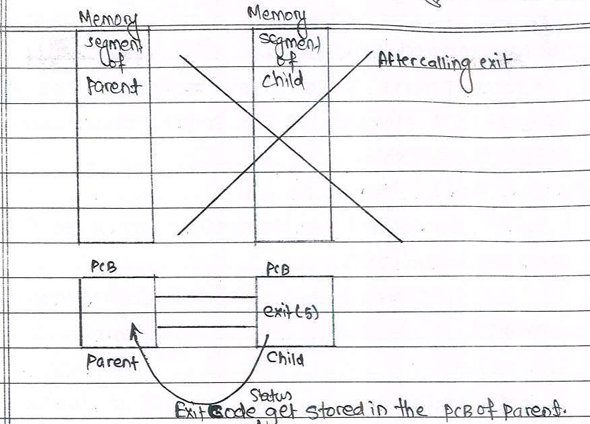 Memory
segment
of
Parent
Memory
segment
of
child
After calling exit
PCB
PCB
exit(5)
Parent
Child
Status
Exit Code get stored in the PCB of parent.